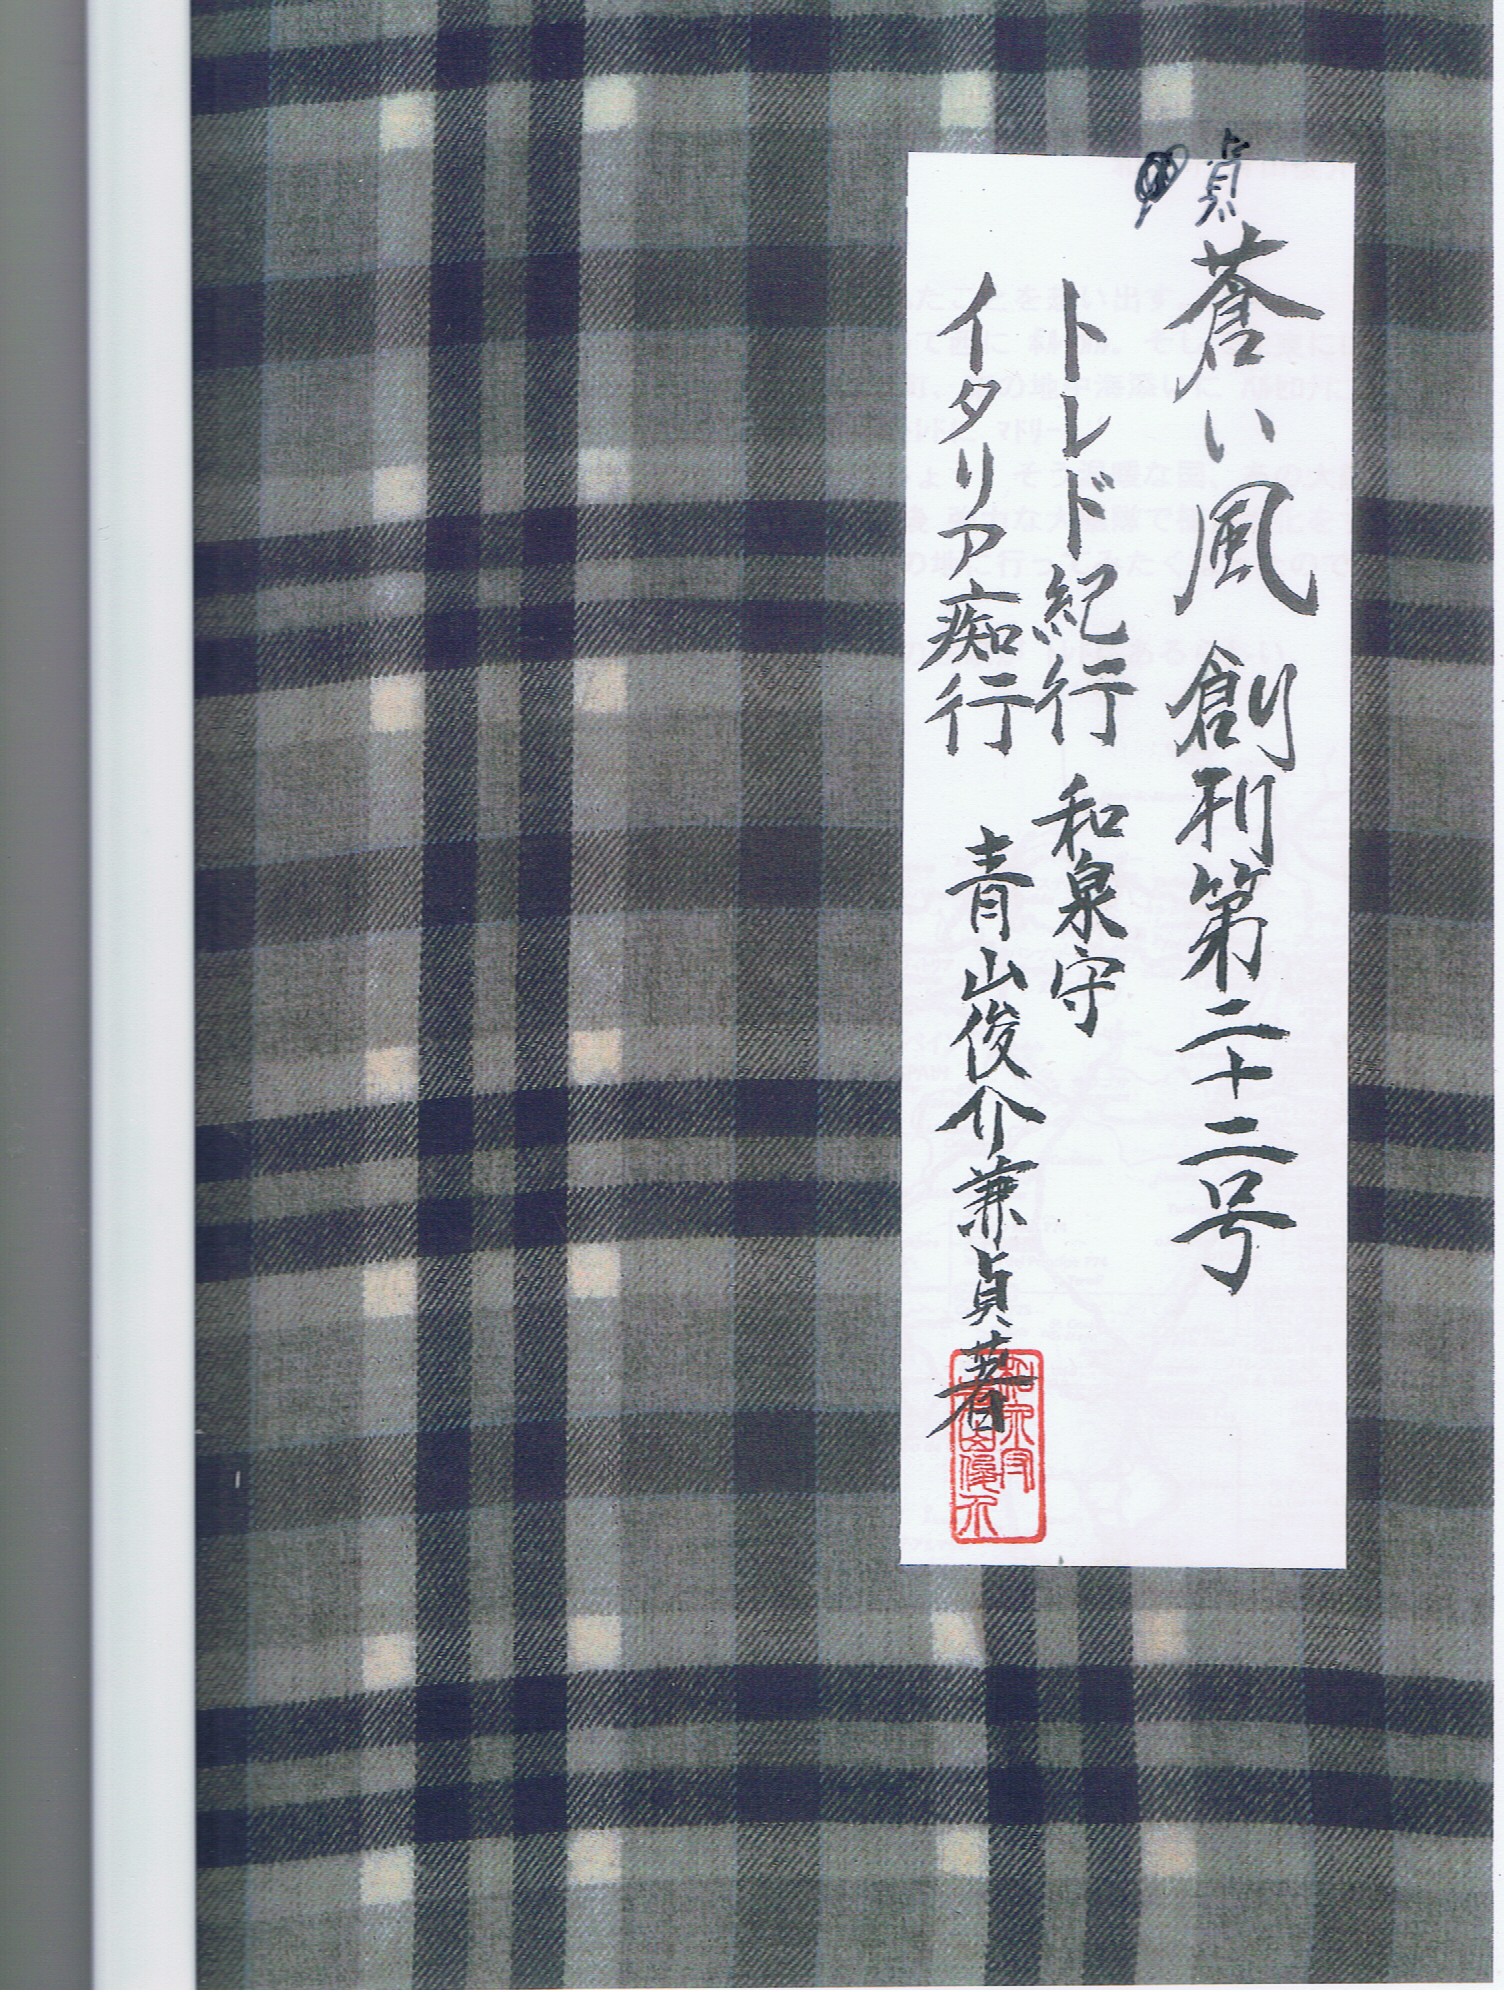 貞
蒼い風 創刊第二十二号
トレド紀行 和泉守
イタリア痴行 青山俊介兼貞著